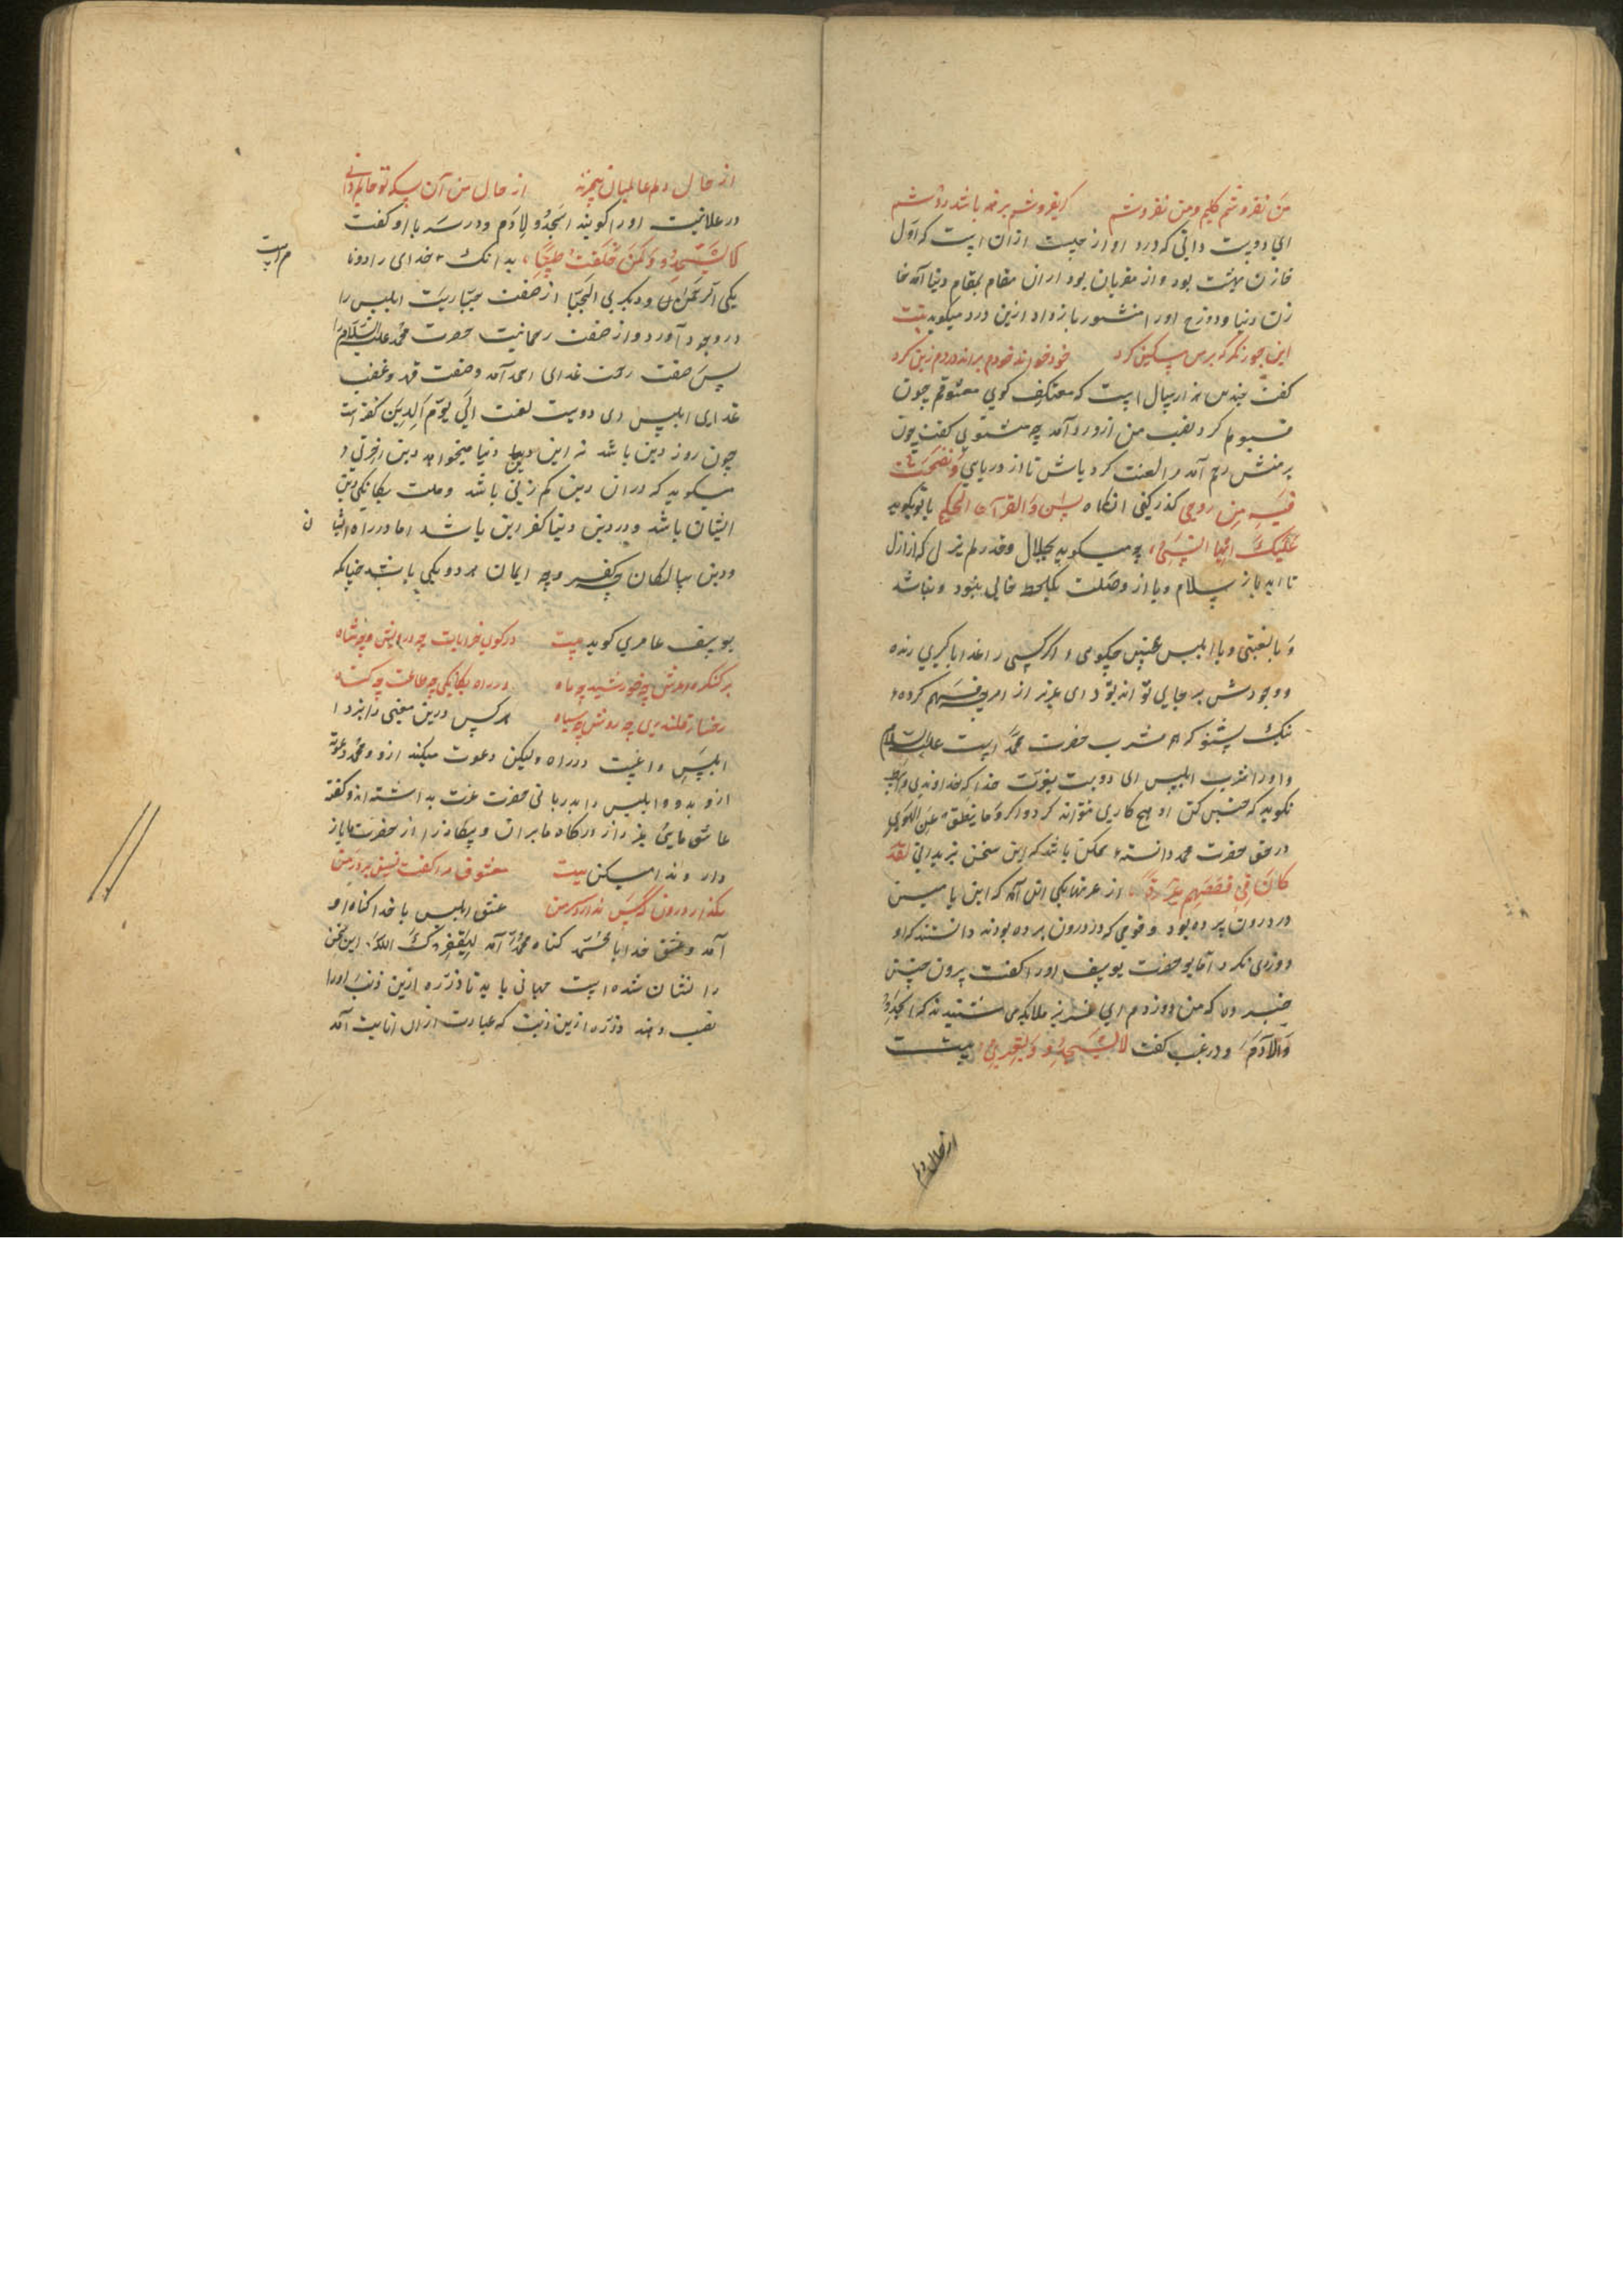 من نفروشم کلیم و من نفروشم کر بفروشم برهنه باشد دوشم
ای دوست دانی که درد او از چیست ازان است که اول
خازن بهشت بود و از مقربان بود از ان مقام بمقام دنیا آمد خا
زن دنیا و دوزخ او را منشور باز داد ازین درد میکوید بیت
این جور نکر که بر من مسکین کرد خود خواند خودم براند دردم زین کرد
کفت چندین هزار سال است که معتکف کوی معشوقم چون
قبولم کرد نصیب من ازو رد آمد چه مشنوی کفت چون
بر منش رحم آمد مرا لعنت کرد باش تا از دریای و نفخت
فیه من روحی کذر کنی انکاه یس و القرآن الحکیم با تو کوید
علیک ایها النبی چه میکوید بجلال و قدر لم یزل که از ازل
تا ابد باز سلام و یا از وصلت یک لحظه خالی نبود و نباشد
و با بلیس چنین چکومی و اکر کسی را
و وجودش بر جایی تو اند بود ای عزیز از امر چه فهم کرده
نیک بشنو که مشرب حضرت محمد است علیه السلام
و او را ابلیس ای دوست بعزت خدا که خداوندی
نکوید که جنبش کن او هیچ کاری نتواند کرد و اکر و ما ینطق عن الهوی
در حق حضرت محمد دانسته ممکن باشد که این سخن نیز بدانی لقد
کان فی قصصهم عبرة از عبرتها یکی این آمد که ابن یامین
در درون پرده بود و قومی که در درون پرده بودند دانستند که او
دزدی نکرد اما یوسف او را کفت بیرون چنین
خبر ده که من دزدم ای عزیز ملائکه می شنیدند که اسجدوا
لآدم و در غیب کفت لا تسجدوا لغیری بیت
از حال دلم
از حال دلم عالمیان بیخبرند از حال من آن بسکه تو حالم دانی
در علانیت او را کویند اسجدو لآدم و در سر با او کفت
خلقت طینا بدانک خدای را دو نا
م است
یکی الرحمن و دیکر الجبار از صفت جباریت ابلیس را
در وجود آورد و از صفت رحمانیت حضرت محمد علیه السلام را
پس صفت رحمت غدای احمد آمد و صفت قهر و غضب
غدای ابلیس ای دوست لعنت الی یوم الدین کفته است
چون روز دین باشد نه این دین دنیا میخواهد دین اخرتی و
میکوید که دران دین کم زنی باشد و ملت یکانکی دین
ایشان باشد و در دین دنیا کفر این باشد اما در راه
و دین سالکان چه کفر و چه ایمان هر دو یکی باشد چنانکه
یوسف عامری کوید بیت در کوی خرابات چه درویش و چه شاه
بر کنکره عرش چه خورشید چه ماه در راه یکانکی چه طاعت چه کناه
رخسار قلندری چه روشن چه سیاه هر کس درین معنی راه نبرد
ابلیس داعیت در راه ولیکن دعوت میکند ازو و محمد دعوت
ازو بدو و ابلیس را بدربانی حضرت عزت بداشته اند و کفته
عاشق مایی غیر را از درکاه ما بران و بیکانه را از حضرت ما باز
دار و ندا میکن بیت معشوق مرا کفت نشین بر در من
مکذار درون که نیست سر من عشق ابلیس با خدا کناه او
آمد و عشق خدا با محمد کناه محمد آمد لیغفر لک الله این سخن
را نشان شده است جهانی باید تا ذره ازین ذنب او را
نصیب دهند و ذره ازین ذنب که عبارت ازان انابیت آمد